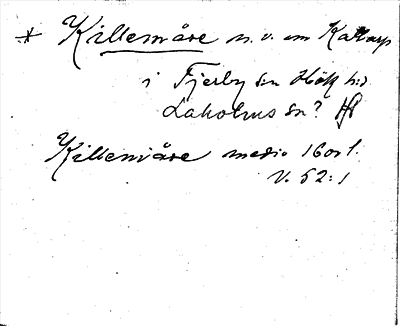 * Killemåre n. v. om Kattarp
i Fjerby sn Höks hd
Laholms sn?
Killemåre medio 1600 t.
V. 52:1